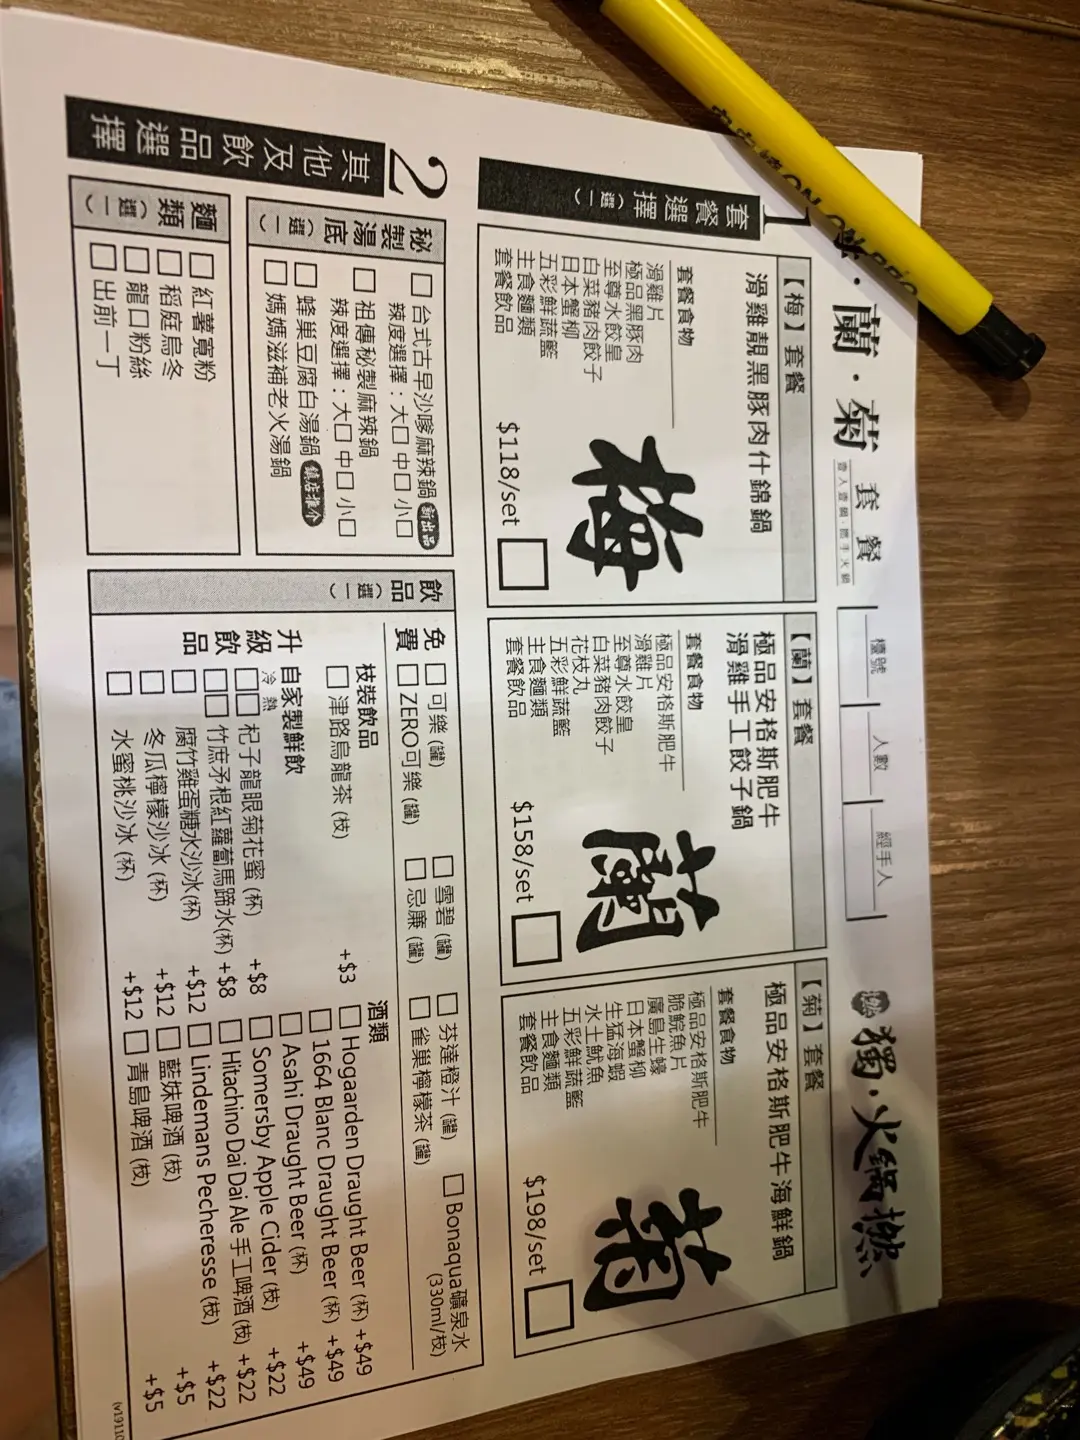 蘭・菊 套餐
壹人壹鍋・攬手火鍋
檯號
人數
經手人
獨・火鍋撚
1
套餐選擇(選一)
【梅】套餐
滑雞靚黑豚肉什錦鍋
套餐食物
滑雞片
極品黑豚肉
至尊水餃皇
白菜豬肉餃子
日本蟹柳
五彩鮮蔬籃
主食麵類
套餐飲品
梅
$118/set
【蘭】套餐
極品安格斯肥牛
滑雞手工餃子鍋
套餐食物
極品安格斯肥牛
滑雞片
至尊水餃皇
白菜豬肉餃子
花枝丸
五彩鮮蔬籃
主食麵類
套餐飲品
蘭
$158/set
【菊】套餐
極品安格斯肥牛海鮮鍋
套餐食物
極品安格斯肥牛
脆鯇魚片
廣島生蠔
日本蟹柳
生猛海蝦
水土魷魚
五彩鮮蔬籃
主食麵類
套餐飲品
菊
$198/set
2
其他及飲品選擇
秘製湯底(選一)
台式古早沙嗲麻辣鍋 新出品
辣度選擇:大 中 小
祖傳秘製麻辣鍋
辣度選擇:大 中 小
蜂巢豆腐白湯鍋 鎮店推介
媽媽滋補老火湯鍋
麵類(選一)
紅薯寬粉
稻庭烏冬
龍口粉絲
出前一丁
飲品(選一)
免費
可樂(罐)
雪碧(罐)
芬達橙汁(罐)
Bonaqua礦泉水
(330ml/枝)
ZERO可樂(罐)
忌廉(罐)
雀巢檸檬茶(罐)
升級飲品
枝裝飲品
津路烏龍茶(枝) +$3
自家製鮮飲
冷 熱
杞子龍眼菊花蜜(杯) +$8
竹庶矛根紅蘿蔔馬蹄水(杯) +$8
腐竹雞蛋糖水沙冰(杯) +$12
冬瓜檸檬沙冰(杯) +$12
水蜜桃沙冰(杯) +$12
酒類
Hogaarden Draught Beer(杯) +$49
1664 Blanc Draught Beer(杯) +$49
Asahi Draught Beer(杯) +$49
Somersby Apple Cider(枝) +$22
Hitachino Dai Dai Ale手工啤酒(枝) +$22
Lindemans Pecheresse(枝) +$22
藍妹啤酒(枝) +$5
青島啤酒(枝) +$5